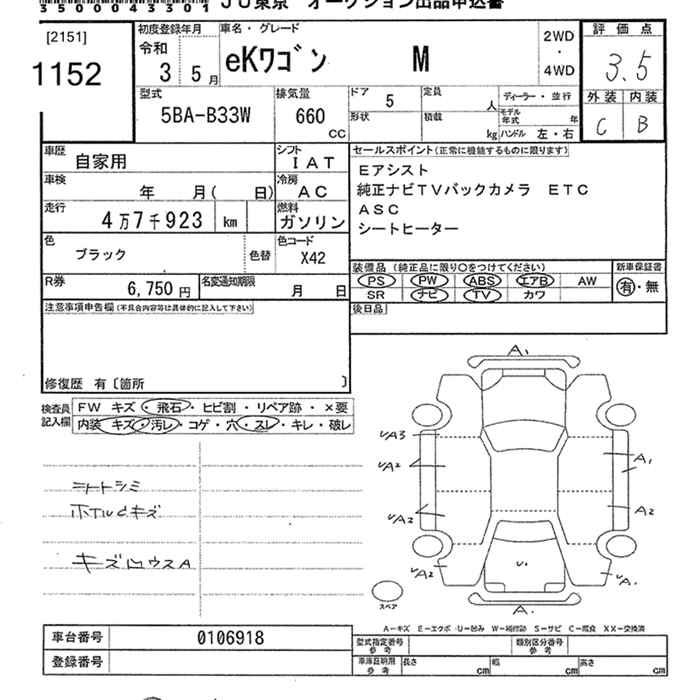 35000043301 JU東京 オークション出品申込書
[2151]
1152
初度登録年月
令和
3 5月
車名・グレード
eKワゴン M
2WD
・
4WD
評価点
3.5
外装 内装
C B
型式
5BA-B33W
排気量
660
CC
ドア 5
形状
定員 人
積載 kg
ディーラー・並行
モデル年式 年
ハンドル 左・右
車歴 自家用
シフト IAT
車検 年 月( 日)
冷房 AC
走行 4万7千923 km
燃料 ガソリン
色 ブラック 色替
色コード X42
R券 6,750円
名変通知期限 月 日
セールスポイント(正常に機能するものに限ります)
Eアシスト
純正ナビTVバックカメラ ETC
ASC
シートヒーター
装備品 (純正品に限り○をつけてください)
PS PW ABS エアB AW
SR ナビ TV カワ
新車保証書
有・無
後日品
注意事項申告欄(不具合内容等は具体的に記入して下さい)
修復歴 有〔箇所 〕
検査員記入欄
FW キズ・飛石・ヒビ割・リペア跡・×要
内装 キズ・汚レ・コゲ・穴・スレ・キレ・破レ
シートシミ
ホイルキズ
A1
UA3
UA2
UA2
UA2
A1
A2
U1
UA1
A1
スペア
A-キズ E-エクボ U-凹み W-補修跡 S-サビ C-腐食 XX-交換済
車台番号 0106918
登録番号
型式指定番号
参考
類別区分番号
参考
車庫証明用
参考
長さ cm
幅 cm
高さ cm